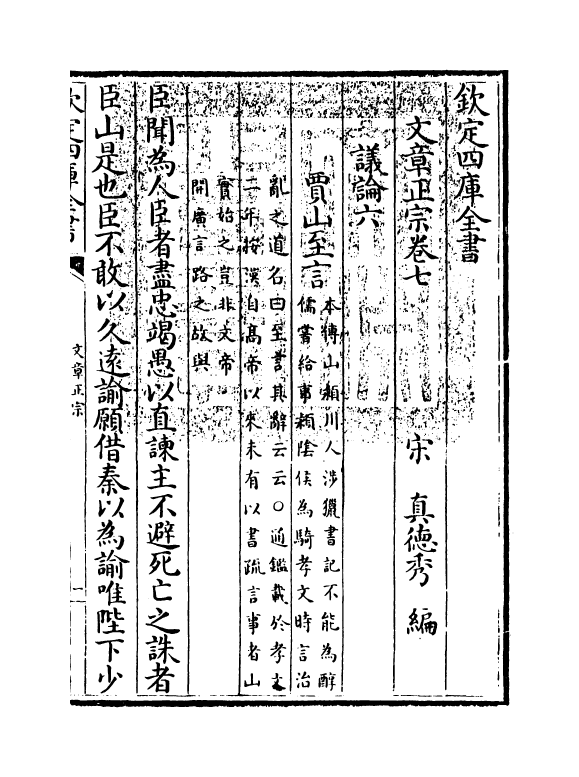 欽定四庫全書
文章正宗卷七
宋 真德秀 編
議論六
賈山至言
本傳山潁川人涉獵書記不能為醇
儒嘗給事潁陰侯為騎孝文時言治
亂之道名曰至言其辭云云○通鑑載於孝文
二年按漢自髙帝以來未有以書疏言事者山
實始之豈非文帝
開廣言路之故與
臣聞為人臣者盡忠竭愚以直諫主不避死亡之誅者
臣山是也臣不敢以久逺諭願借秦以為諭唯陛下少
欽定四庫全書
文章正宗
一